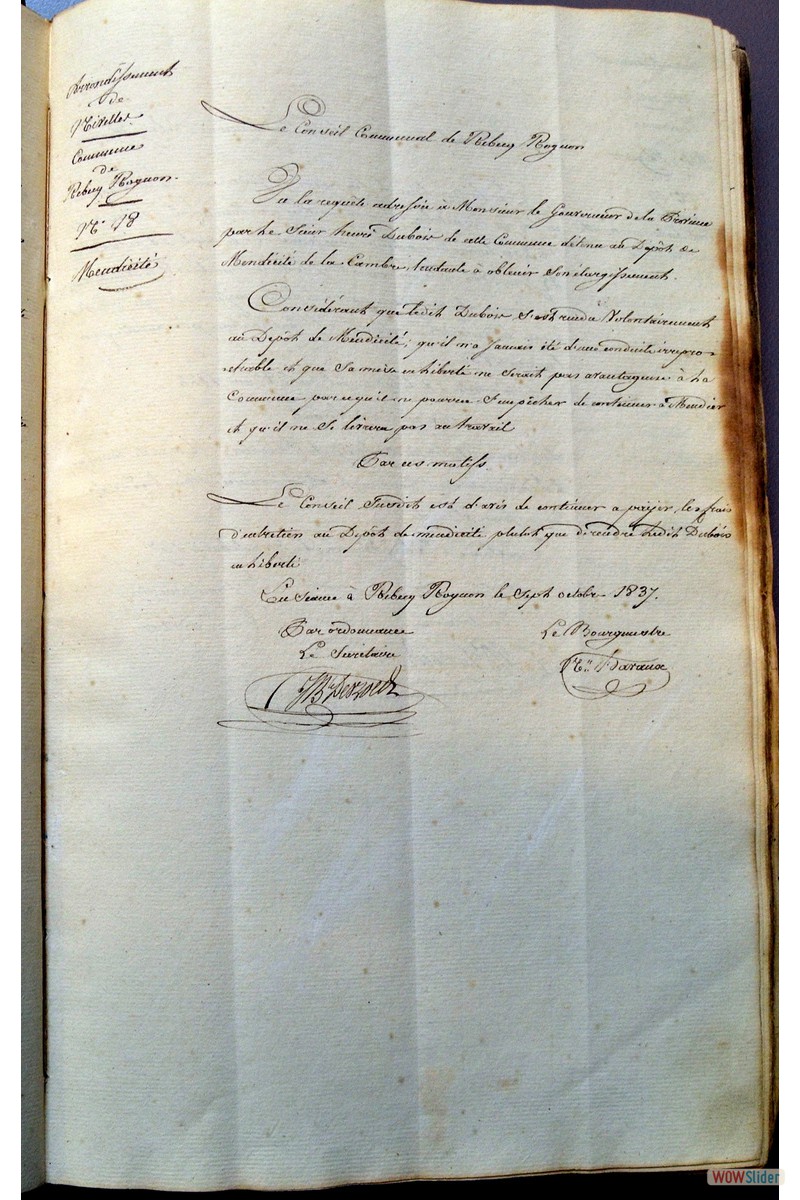 Arrondissement
de
Nivelles
Commune
de
Rebecq Rognon.
N.º 18
Mendicité
Le Conseil Communal de Rebecq Rognon
Vu la requête adressée à Monsieur le Gouverneur de la Province
par le Sieur henri Dubois de cette Commune détenu au Depôt de
Mendicité de la Cambre, tendante à obtenir son élargissement.
Considérant que ledit Dubois s'est rendu Volontairement
au Depôt de Mendicité, qu'il n'a jamais été d'une conduite irrepro-
chable et que Sa mise en liberté ne serait pas avantageuse à la
Commune parcequ'il ne pourra S'empêcher de continuer à Mendier
et qu'il ne Se livrera pas au travail
Par ces motifs
Le Conseil Susdit est d'avis de continuer a payer les frais
d'entretien au Depôt de mendicité plutot que de rendre ledit Dubois
en liberté
En Séance à Rebecq Rognon le Sept octobre 1837.
Par ordonnance
Le Bourgmestre
Le Secrétaire
WOWSlider